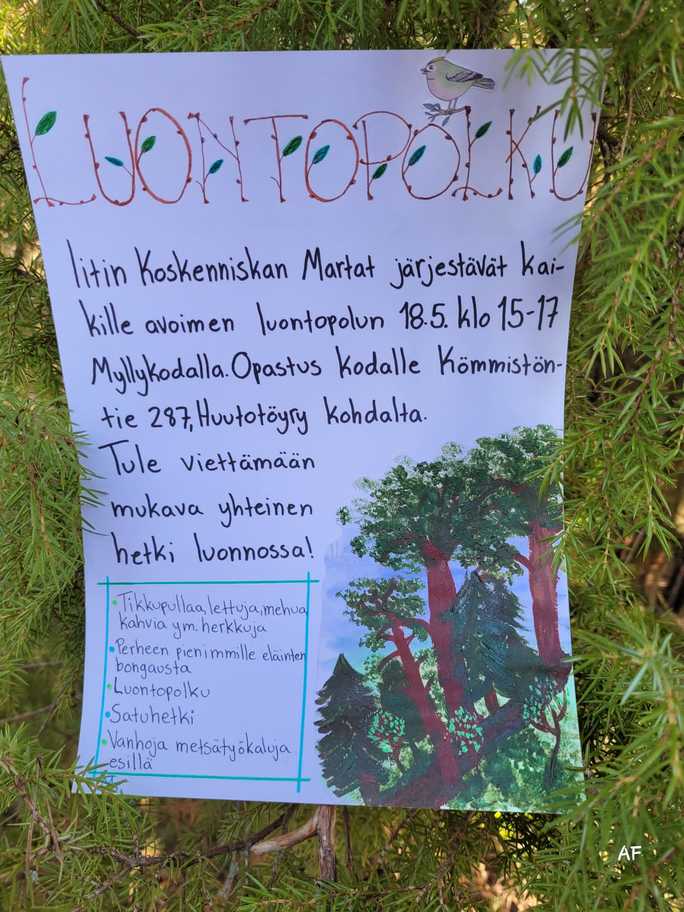 LUONTOPOLKU
Iitin Koskenniskan Martat järjestävät kai-
kille avoimen luontopolun 18.5. klo 15-17
Myllykodalla. Opastus kodalle Kömmistön-
tie 287, Huutotöyry kohdalta.
Tule viettämään
mukava yhteinen
hetki luonnossa!
Tikkupullaa, lettuja, mehua
kahvia ym. herkkuja
Perheen pienimmille eläinten
bongausta
Luontopolku
Satuhetki
Vanhoja metsätyökaluja
esillä
AF